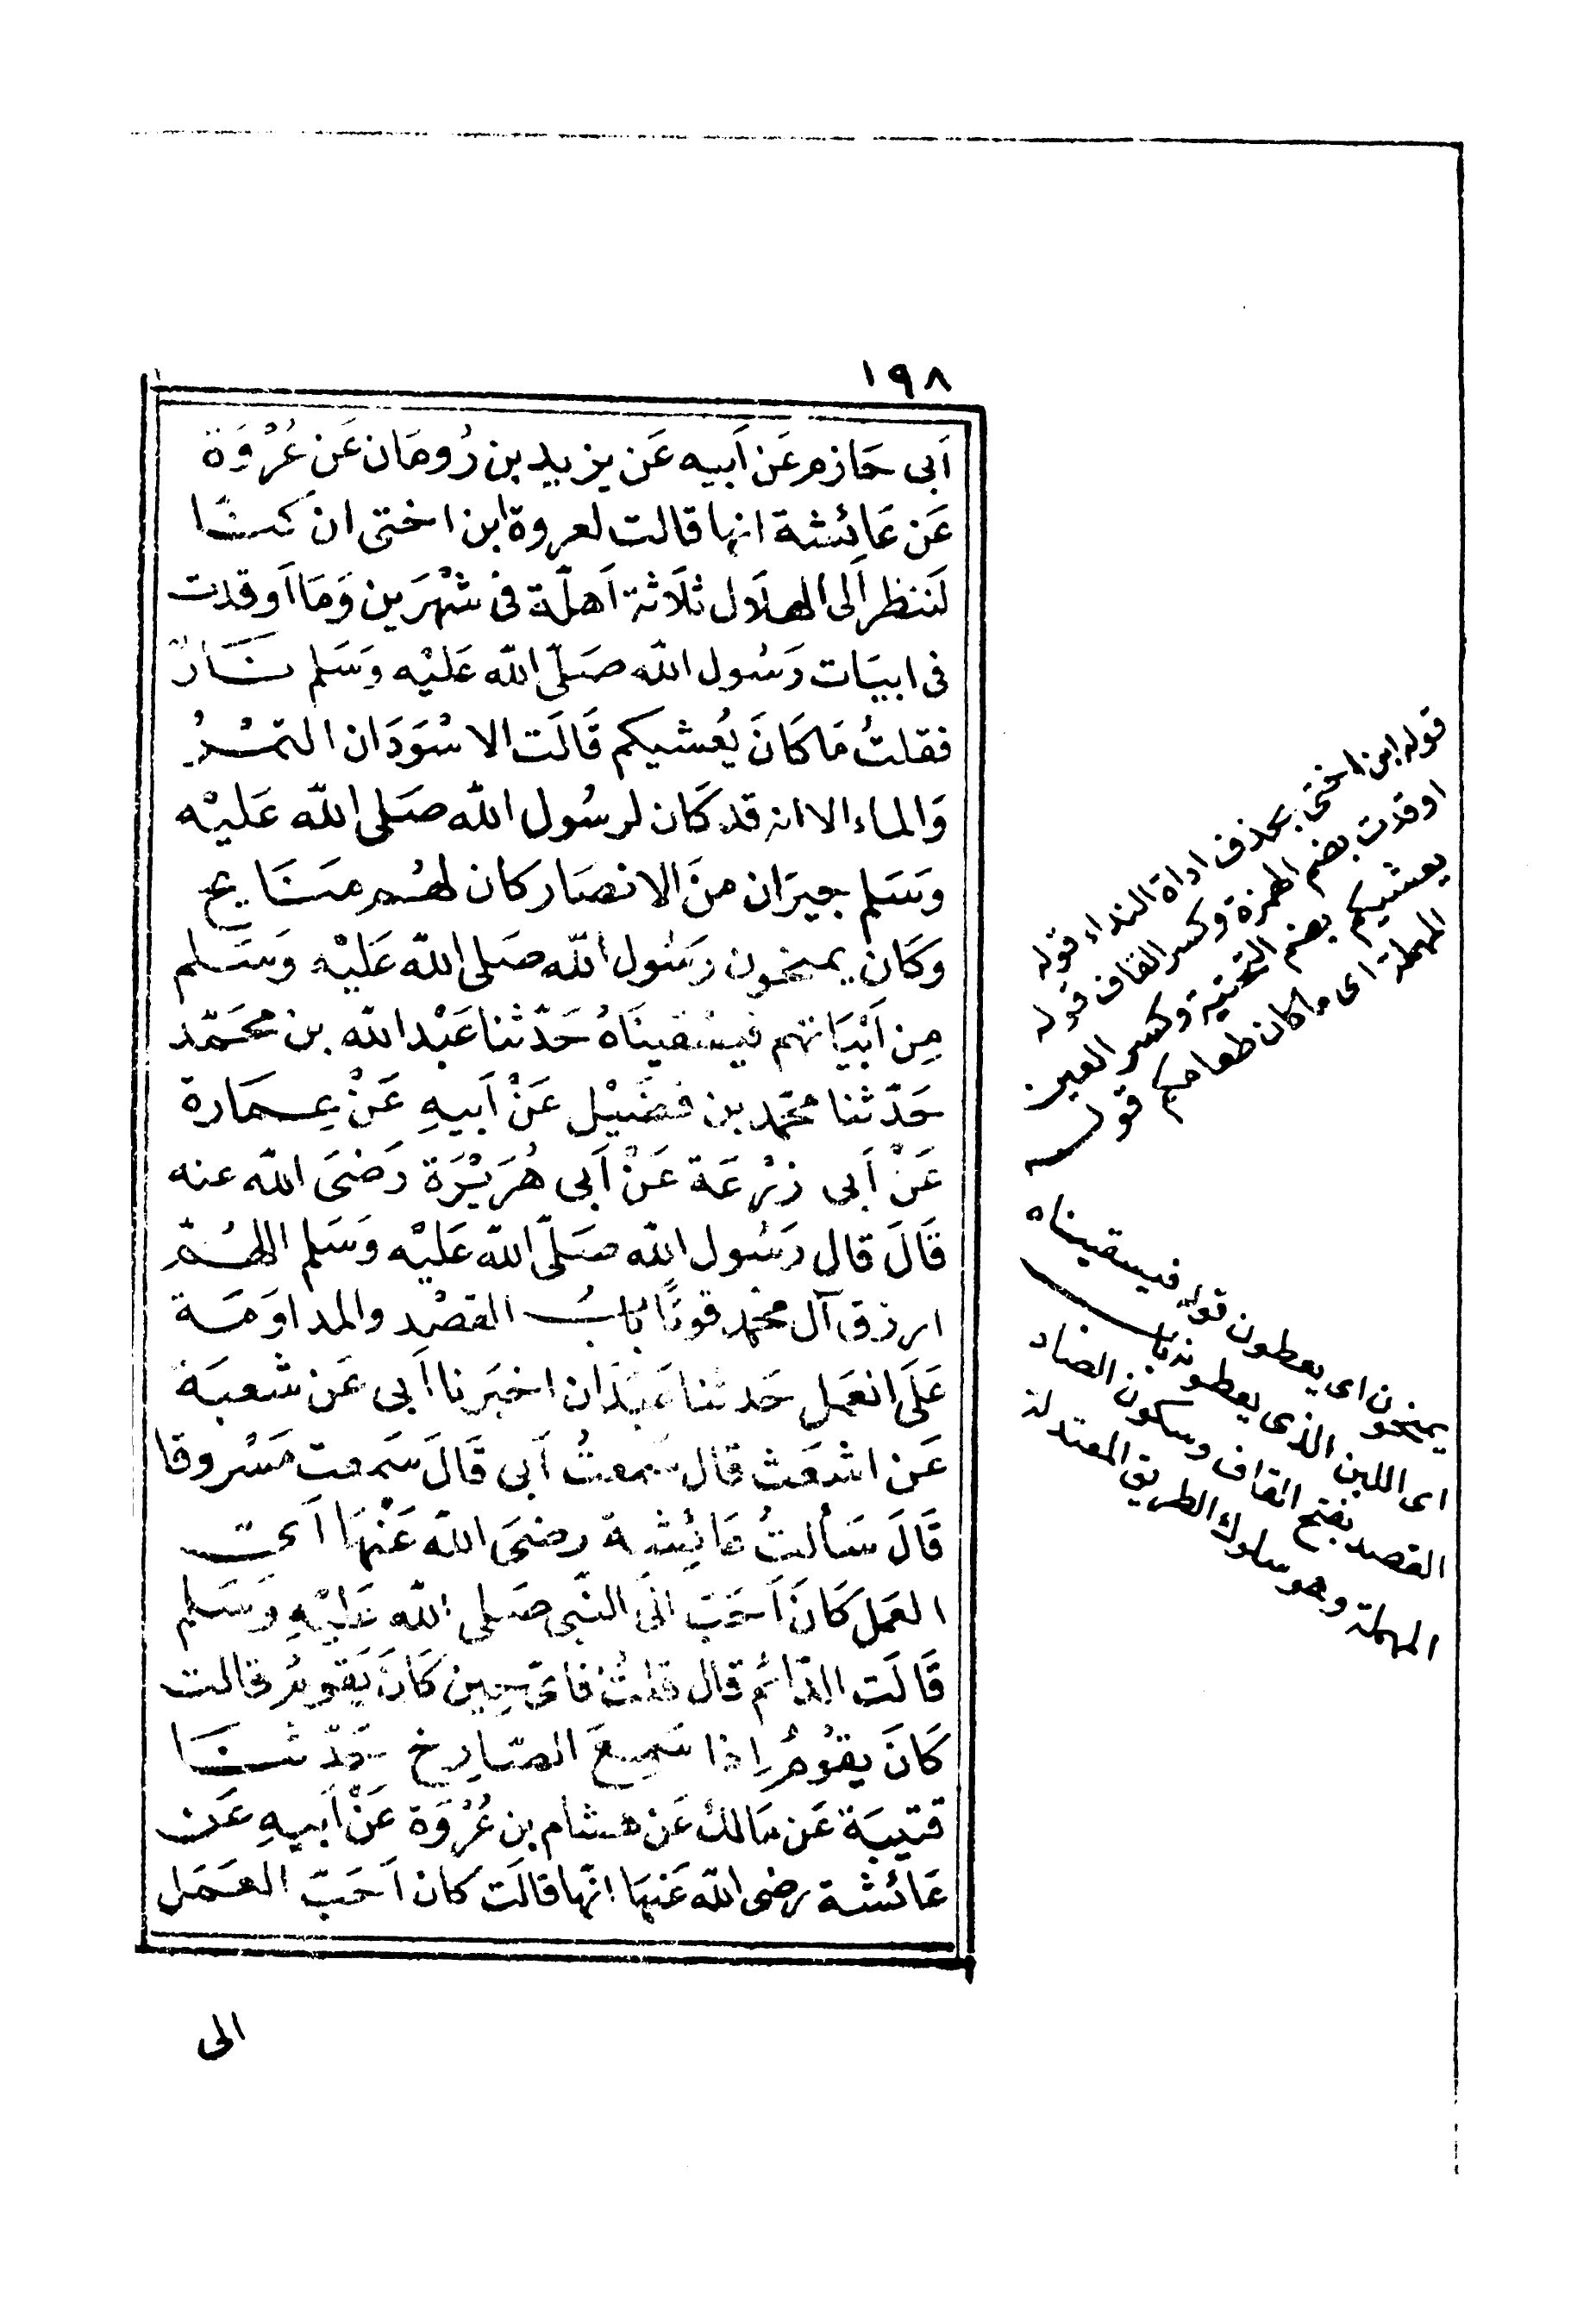 ١٩٨
اَبى حَازم عَن اَبيه عَن يزيد بن رُومَان عَن عُرْوَة
عَن عَائشة انها قالت لعروة ابن اختى ان كنَّا
لَننظر اَلى الهلَال ثلَاثة اَهلّة فى شهْرَين وَمَا اَوقدت
فى ابيَات رَسُول الله صَلّى الله عَليْه وَسَلم نَارٌ
فقلتُ مَا كَانَ يُعشيكم قَالَت الاسْوَدَان التمْرُ
وَالماء الا انه قد كَان لرسُول الله صَلى الله عَليْه
وَسَلم جيرَان منَ الانصَار كان لهُم منَايح
وَكَان يمنحون رَسُول الله صَلى الله عَليْه وَسَلم
مِن اَبْيَاتهم فيسْقينَاهُ حَدّثنا عَبْد الله بن محَمّد
حَدّثنا محمّد بن فضَيْل عَنْ اَبيهِ عَنْ عِمَارة
عَنْ اَبى زرْعَة عَنْ اَبى هُرَيْرَة رَضىَ الله عنه
قَالَ قال رَسُول الله صَلّى الله عَليْه وَسَلم اللهُمّ
ارزق آل محمّد قوتًا بَابُ القصْد والمداوَمَة
عَلَى العَمل حَدثنا عَبدَان اخبَرنا اَبى عَن شعبَة
عَن اشعَث قال سَمعتُ اَبى قَالَ سَمعت مَسْروقا
قَالَ سَألتُ عَائِشة رضىَ الله عَنْهَا اَىّ
العَمل كَانَ اَحَبّ الَى النّبى صَلى الله عَليْهِ وَسَلم
قَالَت الدّائم قال قلتُ فاىّ حِين كَانَ يَقومُ قالت
كَانَ يقُومُ اِذا سَمِعَ الصّارِخ حَدّثنَا
قتيبَة عَن مَالك عَن هشام بن عُرْوَة عَنْ اَبيهِ عَن
عَائشة رضى الله عَنهَا انّها قالَت كان اَحَبّ العَمَل
الى
قوله ابن اختى بحذف اداة النداء قوله
اوقدت بضم الهمزة وكسر القاف قوله
يعشيكم بضم التحتية وكسر العين
المهملة اى ما كان طعامكم قوله
يمنحون اى يعطون قوله فيسقيناه
اى اللبن الذى يعطونه باب
القصد بفتح القاف وسكون الصاد
المهملة وهو سلوك الطريق المعتدلة